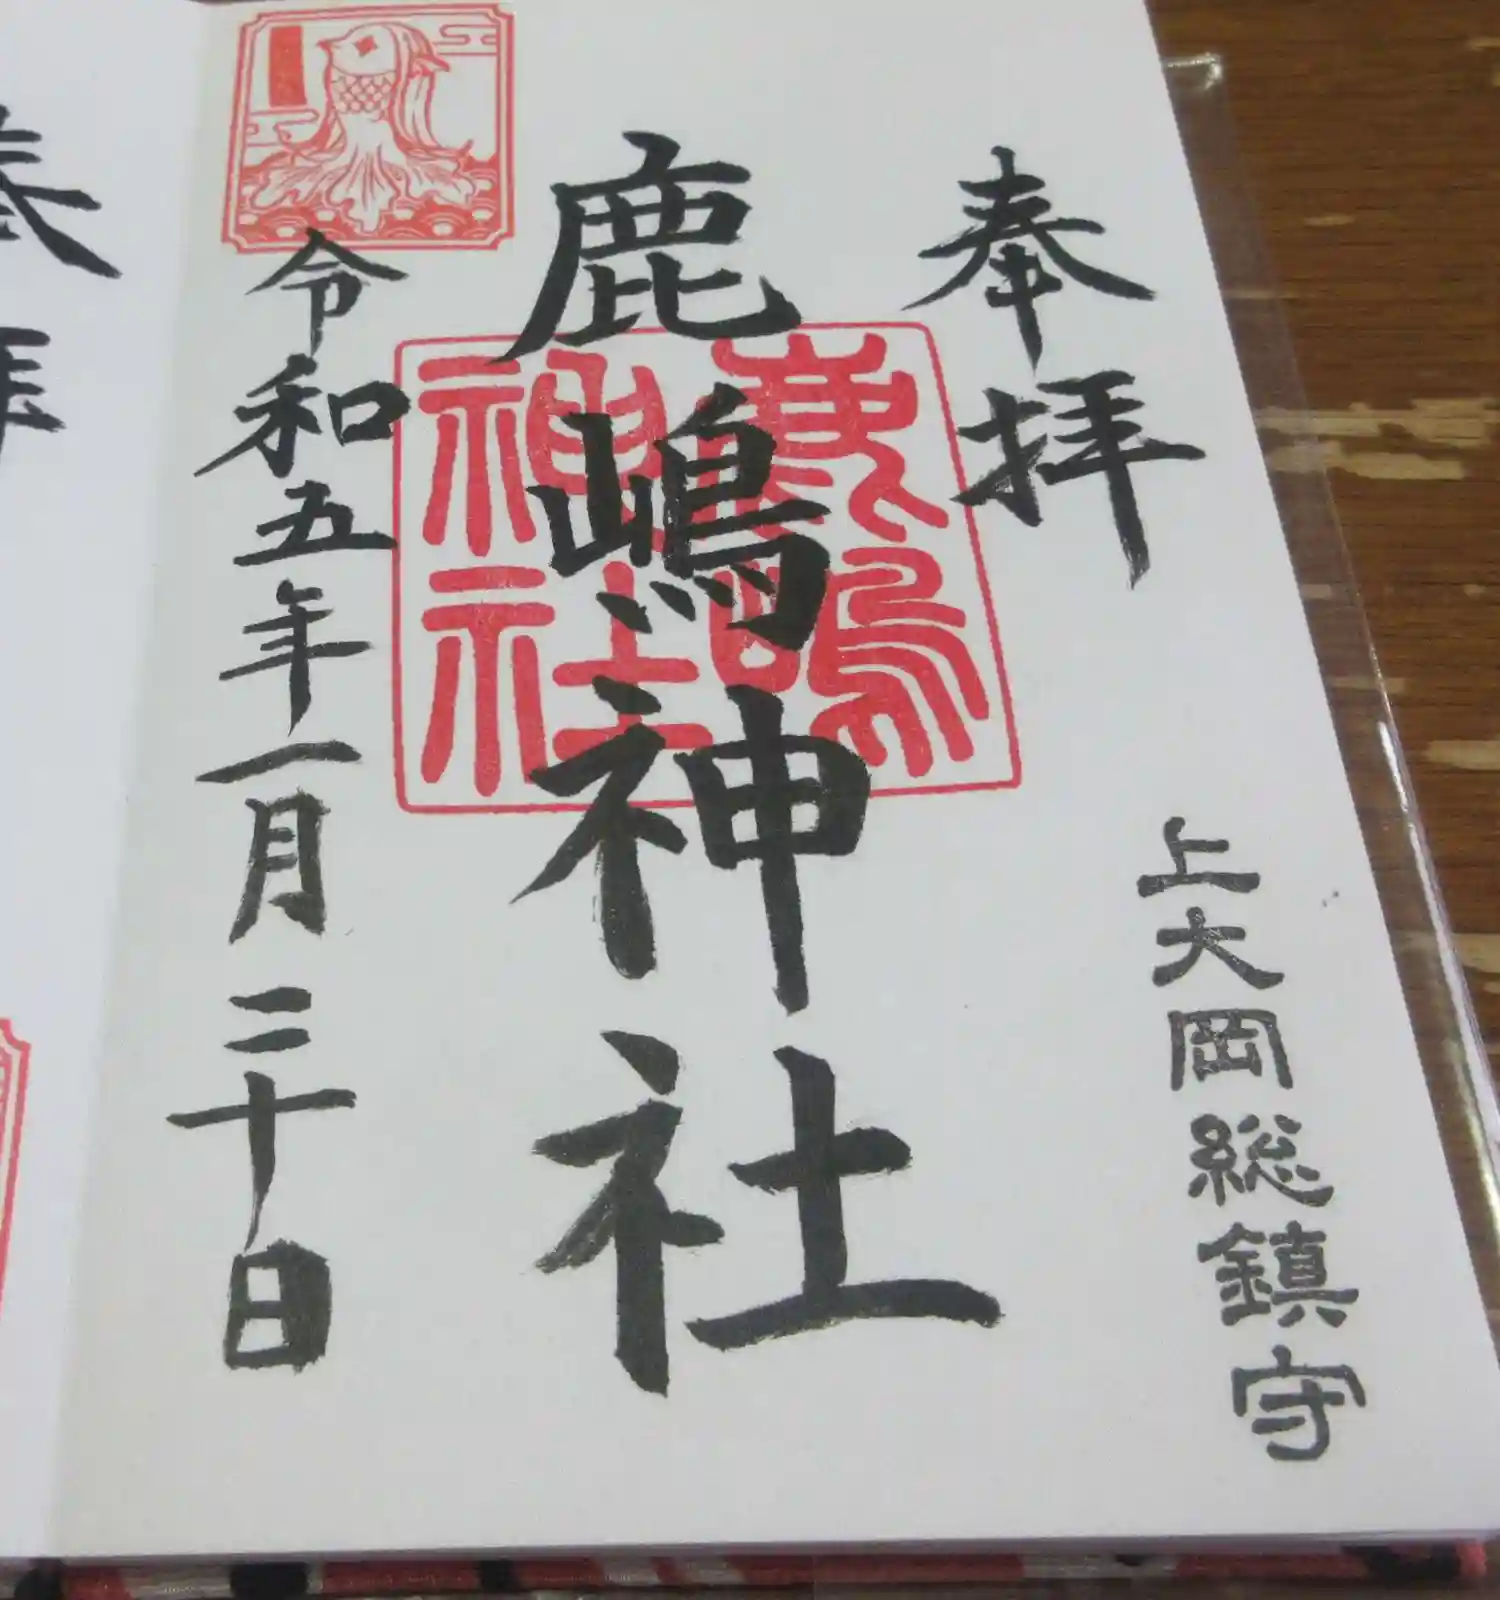 奉拝
上大岡総鎮守
鹿嶋神社
鹿嶋神社
令和五年一月二十日
奉拝